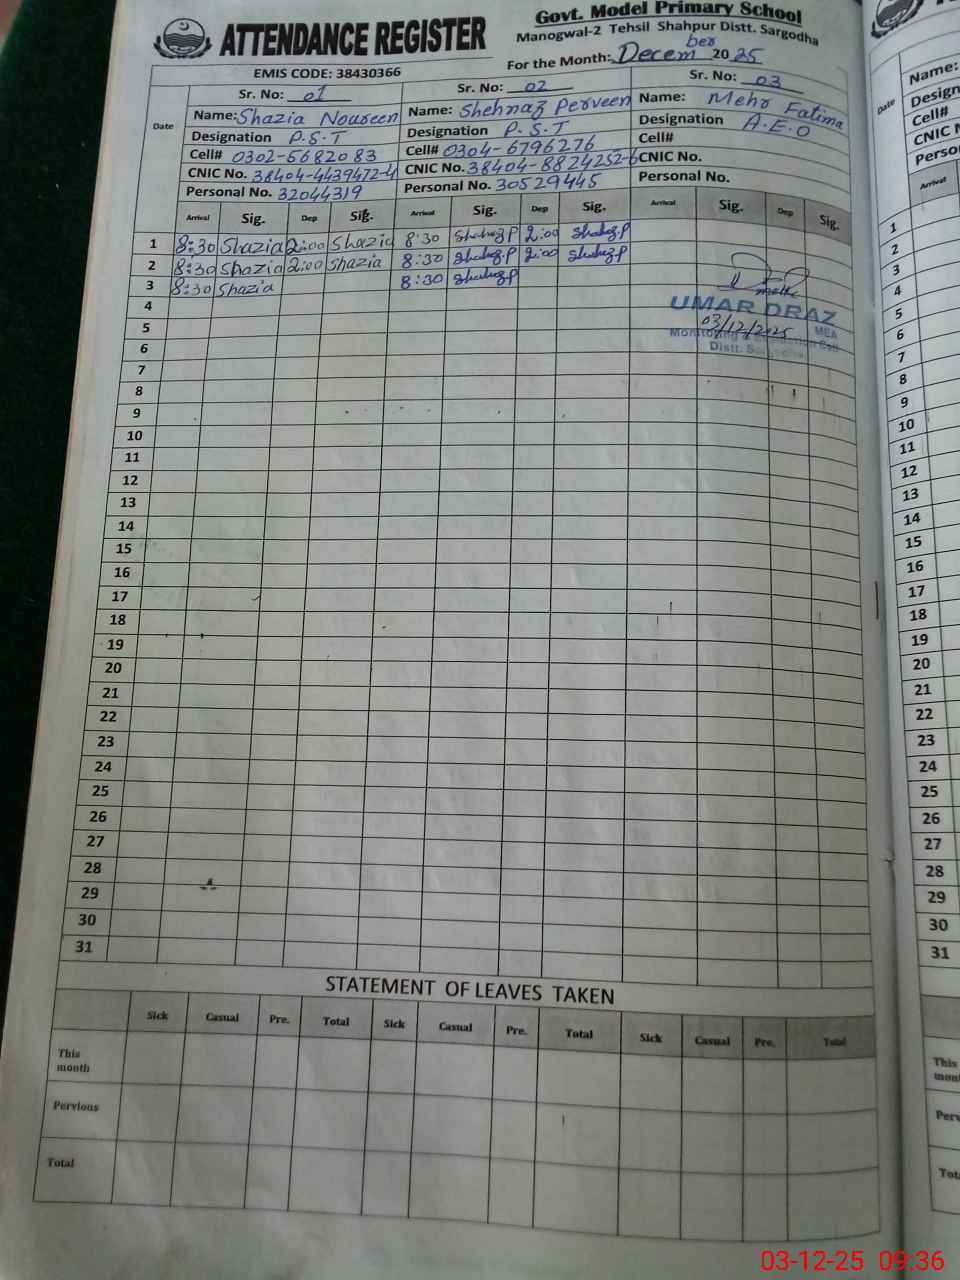 ATTENDANCE REGISTER
Govt. Model Primary School
Manogwal-2 Tehsil Shahpur Distt. Sargodha
For the Month: December 2025
EMIS CODE: 38430366
Date
Sr. No: 01
Name: Shazia Noureen
Designation P.S.T
Cell# 0302-5682083
CNIC No. 38404-4439472-4
Personal No. 32044319
Sr. No: 02
Name: Shehnaz Perveen
Designation P.S.T
Cell# 0304-6796276
CNIC No. 38404-8824252-6
Personal No. 30529445
Sr. No: 03
Name: Mehr Fatima
Designation A.E.O
Cell#
CNIC No.
Personal No.
Arrival Sig. Dep Sig. Arrival Sig. Dep Sig. Arrival Sig. Dep Sig.
1 8:30 Shazia 2:00 Shazia 8:30 Shahnz.P 2:00 Shahnz.P
2 8:30 Shazia 2:00 Shazia 8:30 Shahnz.P 2:00 Shahnz.P
3 8:30 Shazia 8:30 Shahnz.P
UMAR DRAZ
03/12/2025 MEA
Monitoring & Evaluation Cell
Distt. Sargodha
4
5
6
7
8
9
10
11
12
13
14
15
16
17
18
19
20
21
22
23
24
25
26
27
28
29
30
31
STATEMENT OF LEAVES TAKEN
Sick Casual Pre. Total Sick Casual Pre. Total Sick Casual Pre. Total
This
month
Pervious
Total
Date
Name:
Cell#
CNIC
Arrival
1
2
3
4
5
6
7
8
9
10
11
12
13
14
15
16
17
18
19
20
21
22
23
24
25
26
27
28
29
30
31
This
03-12-25 09:36